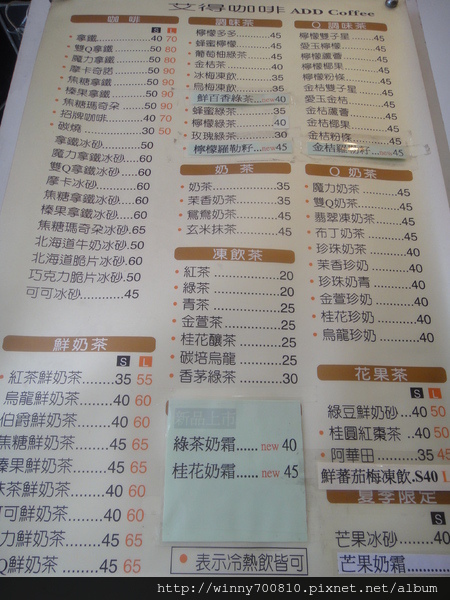 艾得咖啡 ADD Coffee
咖啡
S L
拿鐵 40 70
雙Q拿鐵 50 80
魔力拿鐵 50 80
摩卡奇諾 50 90
焦糖拿鐵 50 90
榛果拿鐵 50 90
焦糖瑪奇朵 50 90
招牌咖啡 40 70
碳燒 30 50
拿鐵冰砂 60
魔力拿鐵冰砂 60
雙Q冰砂 60
摩卡冰砂 60
焦糖拿鐵冰砂 60
榛果拿鐵冰砂 60
焦糖瑪奇朵冰砂 65
北海道牛奶冰砂 50
北海道脆片冰砂 60
巧克力脆片冰砂 50
可可冰砂 45
鮮奶茶
S L
紅茶鮮奶茶 35 55
烏龍鮮奶茶 40 60
伯爵鮮奶茶 40 60
焦糖鮮奶茶 45 65
榛果鮮奶茶 45 65
抹茶鮮奶茶 40 60
可可鮮奶茶 40 60
力鮮奶茶 45 65
Q鮮奶茶 45 65
調味茶
檸檬多多 45
蜂蜜檸檬 45
葡萄柚綠茶 45
金桔茶 40
冰梅凍飲 35
烏梅凍飲 35
鮮百香綠茶 new 40
蜂蜜綠茶 35
檸檬綠茶 40
玫瑰綠茶 30
檸檬羅勒籽 new 45
奶茶
奶茶 35
茉香奶茶 35
鴛鴦奶茶 45
玄米抹茶 45
凍飲茶
紅茶 20
綠茶 20
青茶 25
金萱茶 25
桂花釀茶 25
碳培烏龍 25
香茅綠茶 30
新品上市
綠茶奶霜 new 40
桂花奶霜 new 45
• 表示冷熱飲皆可
Q 調味茶
檸檬雙子星 45
愛玉檸檬 45
檸檬蘆薈 45
檸檬椰果 45
檸檬粉條 45
金桔雙子星 45
愛玉金桔 45
金桔蘆薈 45
金桔椰果 45
金桔粉條 45
金桔羅勒籽 new 45
Q 奶茶
魔力奶茶 45
雙Q奶茶 45
翡翠凍奶茶 45
布丁奶茶 45
珍珠奶茶 40
茉香珍奶 40
珍珠奶青 40
金萱珍奶 40
桂花珍奶 40
烏龍珍奶 40
花果茶
S L
綠豆鮮奶砂 40 50
桂圓紅棗茶 40 50
阿華田 35 45
鮮蕃茄梅凍飲.S40 L
夏季限定
S
芒果冰砂 40
芒果奶霜
http://winny700810.pixnet.net/album